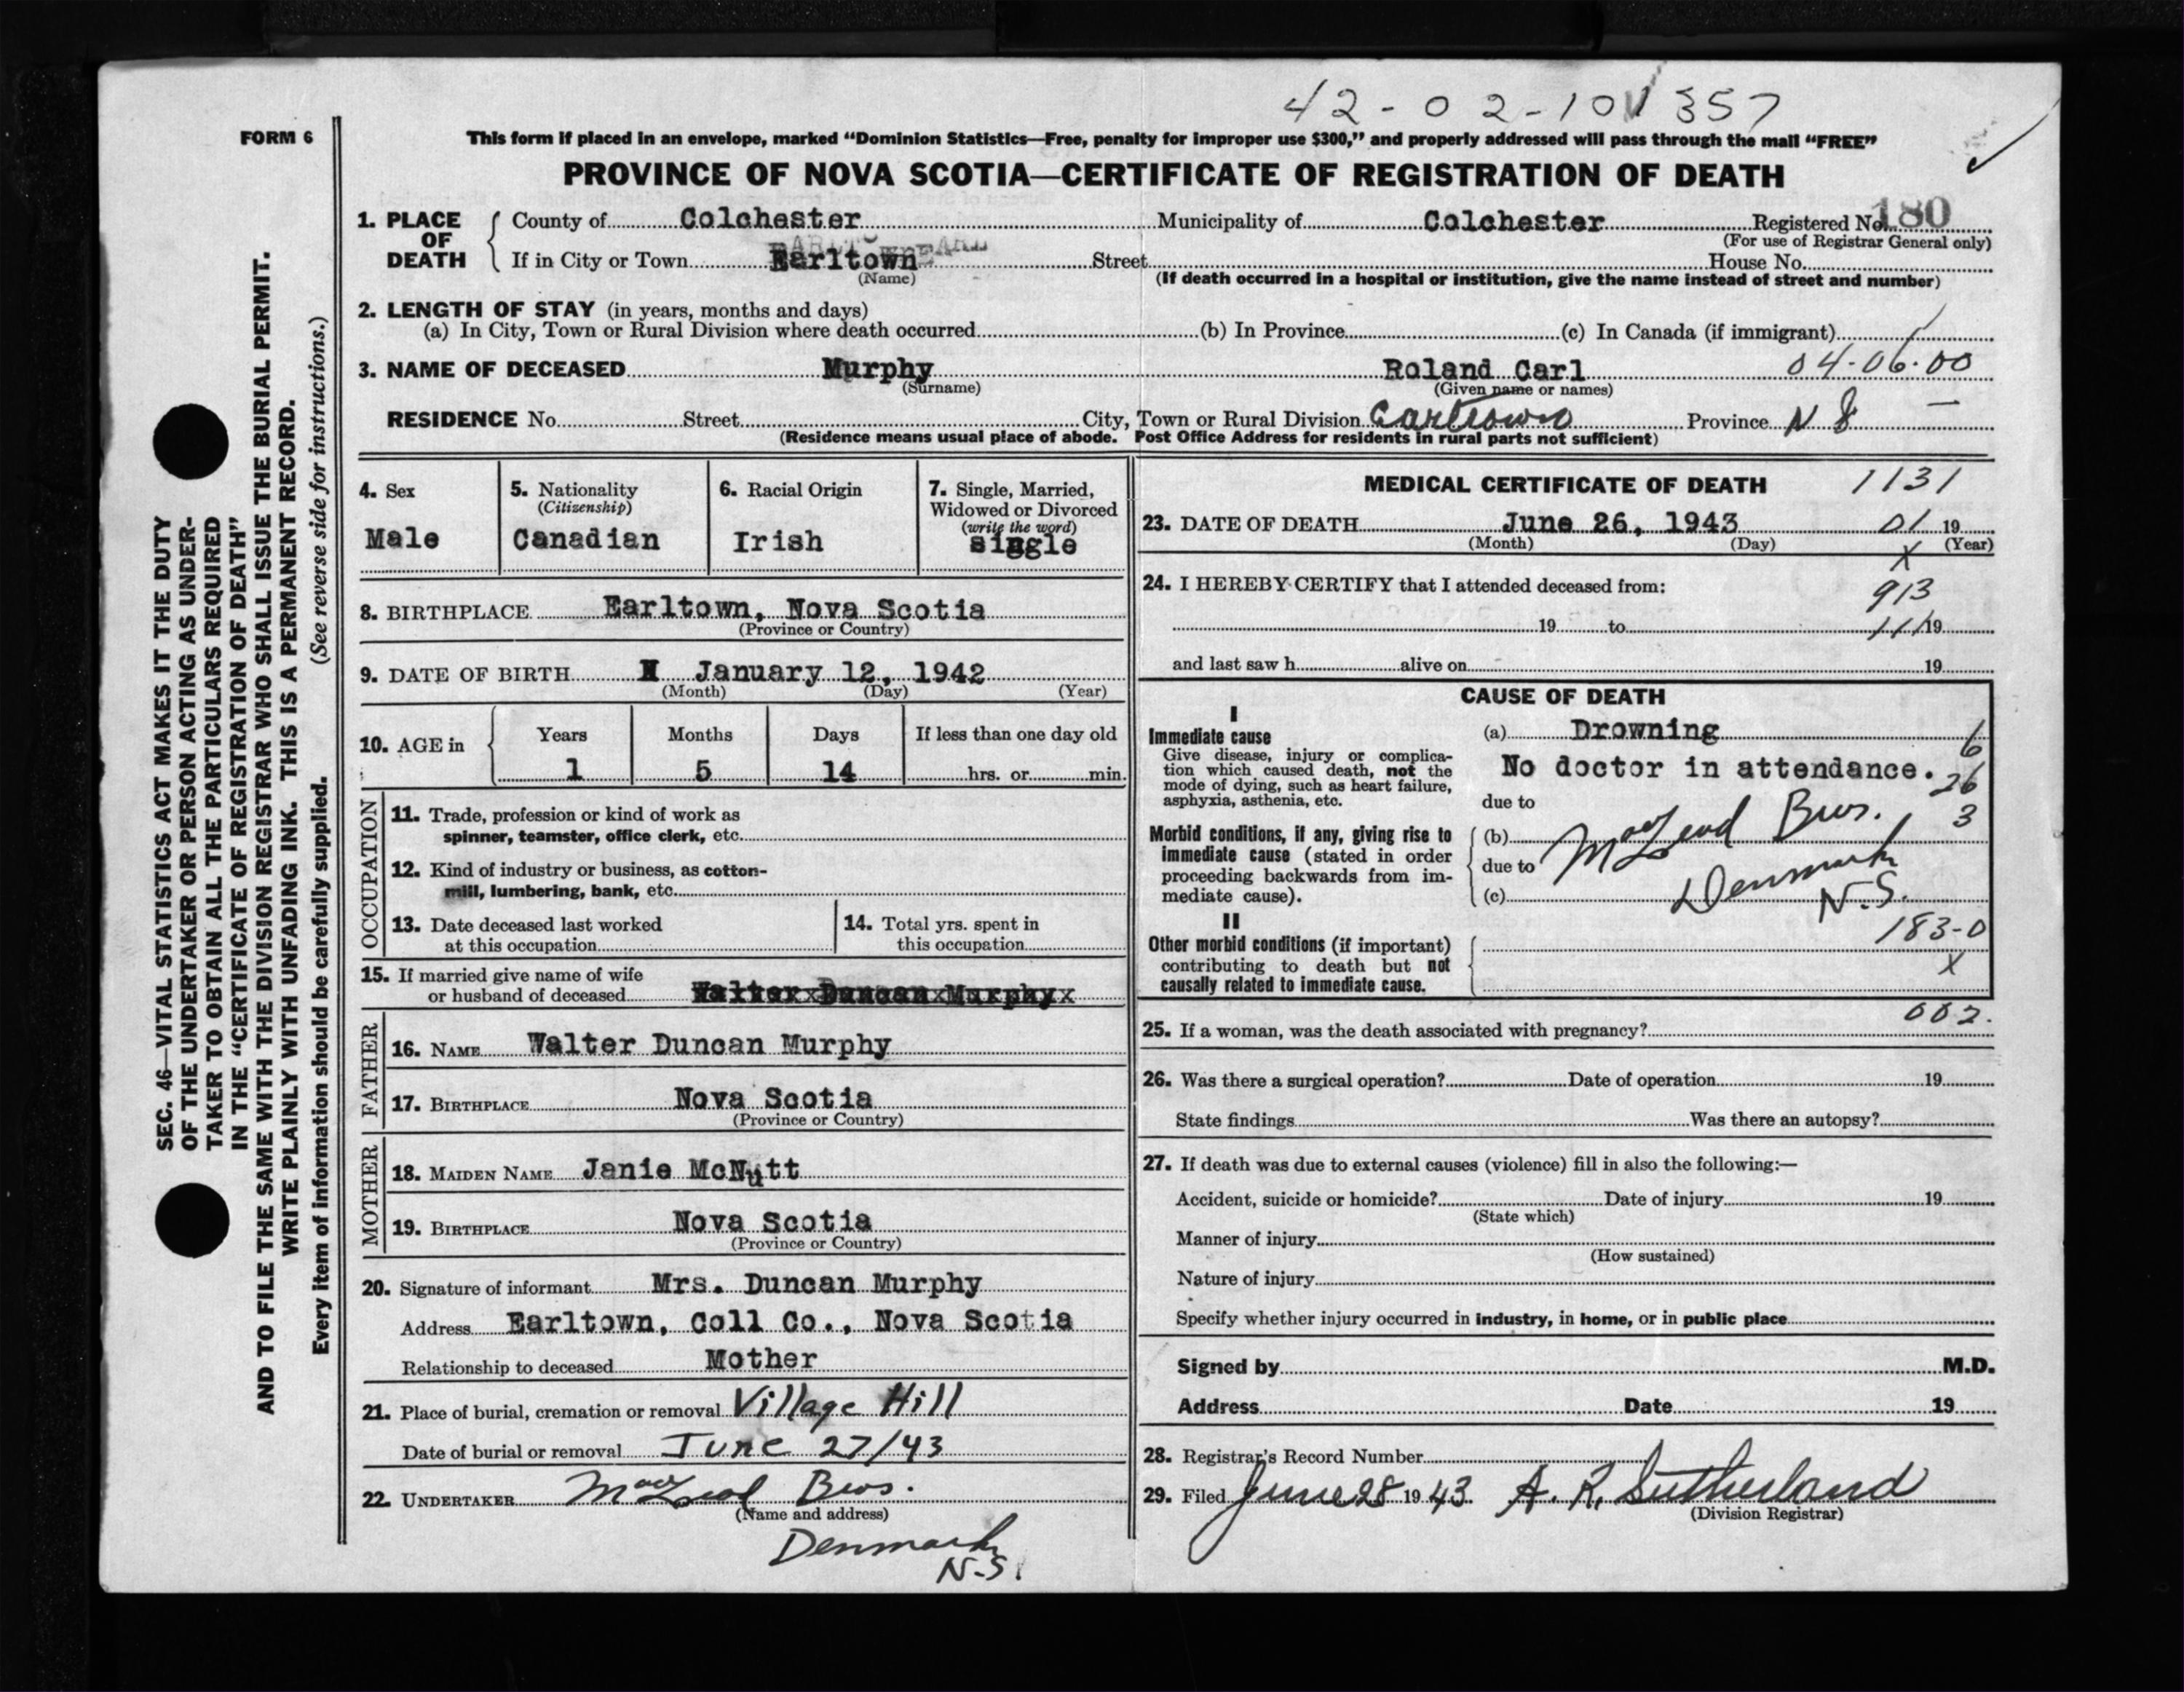 42-02-10 1357
FORM 6
This form if placed in an envelope, marked “Dominion Statistics—Free, penalty for improper use $300,” and properly addressed will pass through the mail “FREE”
PROVINCE OF NOVA SCOTIA—CERTIFICATE OF REGISTRATION OF DEATH
1. PLACE OF DEATH County of Colchester Municipality of Colchester Registered No. 180
(For use of Registrar General only)
If in City or Town Earltown Street House No.
(Name) (If death occurred in a hospital or institution, give the name instead of street and number)
2. LENGTH OF STAY (in years, months and days)
(a) In City, Town or Rural Division where death occurred (b) In Province (c) In Canada (if immigrant)
3. NAME OF DECEASED Murphy Roland Carl 04-06-00
(Surname) (Given name or names)
RESIDENCE No. Street City, Town or Rural Division Earltown Province N S
(Residence means usual place of abode. Post Office Address for residents in rural parts not sufficient)
4. Sex
Male
5. Nationality
(Citizenship)
Canadian
6. Racial Origin
Irish
7. Single, Married,
Widowed or Divorced
(write the word)
single
8. BIRTHPLACE Earltown, Nova Scotia
(Province or Country)
9. DATE OF BIRTH January 12, 1942
(Month) (Day) (Year)
10. AGE in Years Months Days If less than one day old
1 5 14 hrs. or min.
OCCUPATION
11. Trade, profession or kind of work as
spinner, teamster, office clerk, etc.
12. Kind of industry or business, as cotton-
mill, lumbering, bank, etc.
13. Date deceased last worked
at this occupation
14. Total yrs. spent in
this occupation
15. If married give name of wife
or husband of deceased Walter Duncan Murphy
FATHER
16. NAME Walter Duncan Murphy
17. BIRTHPLACE Nova Scotia
(Province or Country)
MOTHER
18. MAIDEN NAME Janie McNutt
19. BIRTHPLACE Nova Scotia
(Province or Country)
20. Signature of informant Mrs. Duncan Murphy
Address Earltown, Coll Co., Nova Scotia
Relationship to deceased Mother
21. Place of burial, cremation or removal Village Hill
Date of burial or removal June 27/43
22. UNDERTAKER MacLeod Bros.
(Name and address)
Denmark
N.S.
MEDICAL CERTIFICATE OF DEATH 1131
23. DATE OF DEATH June 26, 1943 01 19
(Month) (Day) (Year)
X
24. I HEREBY CERTIFY that I attended deceased from:
913
19 to 111 19
and last saw h alive on 19
CAUSE OF DEATH
I
Immediate cause
Give disease, injury or complica-
tion which caused death, not the
mode of dying, such as heart failure,
asphyxia, asthenia, etc.
(a) Drowning 6
No doctor in attendance. 26
due to
3
Morbid conditions, if any, giving rise to
immediate cause (stated in order
proceeding backwards from im-
mediate cause).
(b) MacLeod Bros.
due to
Denmark
(c) N.S.
II
Other morbid conditions (if important)
contributing to death but not
causally related to immediate cause.
183-0
X
002.
25. If a woman, was the death associated with pregnancy?
26. Was there a surgical operation? Date of operation 19
State findings Was there an autopsy?
27. If death was due to external causes (violence) fill in also the following:—
Accident, suicide or homicide? Date of injury 19
(State which)
Manner of injury
(How sustained)
Nature of injury
Specify whether injury occurred in industry, in home, or in public place
Signed by M.D.
Address Date 19
28. Registrar's Record Number
29. Filed June 28 1943. A. R. Sutherland
(Division Registrar)
SEC. 46—VITAL STATISTICS ACT MAKES IT THE DUTY
OF THE UNDERTAKER OR PERSON ACTING AS UNDER-
TAKER TO OBTAIN ALL THE PARTICULARS REQUIRED
IN THE “CERTIFICATE OF REGISTRATION OF DEATH”
AND TO FILE THE SAME WITH THE DIVISION REGISTRAR WHO SHALL ISSUE THE BURIAL PERMIT.
WRITE PLAINLY WITH UNFADING INK. THIS IS A PERMANENT RECORD.
Every item of information should be carefully supplied. (See reverse side for instructions.)